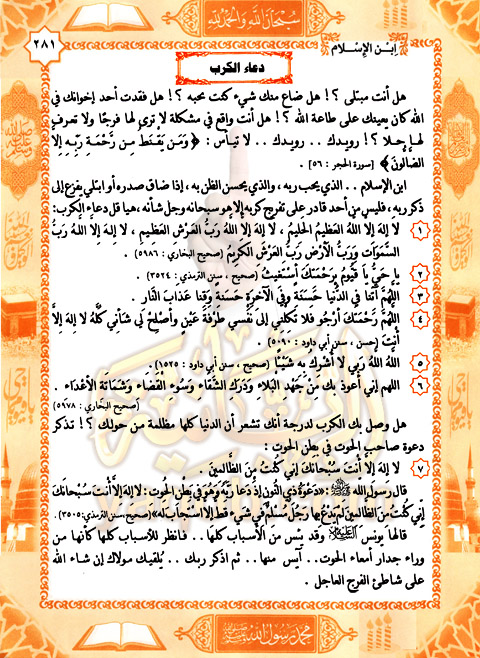 سبحان الله والحمد لله
٢٨١
إبن الإسلام
دعاء الكرب
هل أنت مبتلى ؟! هل ضاع منك شيء كنت تحبه ؟! هل فقدت أحد إخوانك في
الله كان يعينك على طاعة الله ؟! هل أنت واقع في مشكلة لا ترى لها فرجًا ولا تعرف
لها حلاً ؟! رويدك .. رويدك .. لا تيأس : ﴿ وَمَن يَقْنَطُ مِن رَّحْمَةِ رَبِّهِ إِلَّا
الضَّالُّونَ﴾ [سورة الحجر : ٥٦] .
ابن الإسلام .. الذي يحب ربه ، والذي يحسن الظن به ، إذا ضاق صدره أو ابتلي يفزع إلى
ذكر ربه ، فليس من أحد قادر على تفريج كربه إلا هو سبحانه وجل شأنه ، هيا قل دعاء الكرب:
١ لا إلهَ إلا اللهُ العَظيمُ الحَليمُ ، لا إلهَ إلا اللهُ رَبُّ العَرْشِ العَظِيمِ ، لا إلهَ إلا اللهُ رَبُّ
السَّمَوَاتِ وَرَبُّ الأَرْضِ رَبُّ العَرْشِ الكَرِيمُ (صحيح البخاري : ٥٩٨٦) .
٢ يا حَيُّ يا قَيُّومُ بِرَحْمَتِكَ أَسْتَغِيثُ (صحيح ، سنن الترمذي : ٣٥٢٤) .
٣ اللهُمَّ آتنَا فِي الدُّنْيَا حَسَنَةً وَفِي الآخِرَةِ حَسَنَةً وَقِنَا عَذَابَ النَّارِ .
٤ اللهُمَّ رَحْمَتَكَ أَرْجُو فَلا تَكِلْنِي إِلى نَفْسِي طَرْفَةَ عَيْنٍ وَأَصْلِحْ لِي شَأْنِي كُلَّهُ لا إِلهَ إلَّا
أَنْتَ (حسن ، سنن أبي داود : ٥٠٩٠) .
٥ اللهُ اللهُ رَبِّي لا أُشْرِكُ بِهِ شَيْئًا (صحيح ، سنن أبي داود : ١٥٢٥) .
٦ اللهم إني أعوذ بك مِنْ جَهْدِ البَلاءِ وَدَرَكِ الشَّقَاءِ وَسُوءِ القَضَاءِ وَشَمَاتَةِ الأَعْدَاءِ .
(صحيح البخاري : ٥٩٧٨)
هل وصل بك الكرب لدرجة أنك تشعر أن الدنيا كلها مظلمة من حولك ؟! تذكر
دعوة صاحب الحوت في بطن الحوت :
٧ لا إلهَ إلا أَنْتَ سُبْحَانَكَ إِنِّي كُنْتُ مِنَ الظَّالِمِينَ .
قال رسول الله ﷺ : «دَعْوَةُ ذِي النُّونِ إِذْ دَعَا رَبَّهُ وَهُوَ فِي بَطْنِ الحُوتِ: لا إِلهَ إِلاَّ أَنْتَ سُبْحَانَكَ
إِنِّي كُنْتُ مِنَ الظَّالِمِينَ لَمْ يَدْعُ بِهَا رَجُلٌ مُسْلِمٌ فِي شَيْءٍ قَط إِلا اسْتَجَابَ لَه» (صحيح، سنن الترمذي: ٣٥٠٥).
قالها يونس عليه السلام وقد يئس من الأسباب كلها .. فانظر للأسباب كلها كأنها من
وراء جدار أمعاء الحوت.. آيس منها.. ثم اذكر ربك .. يُلقيك مولاك إن شاء الله
على شاطئ الفرج العاجل .
محمد رسول الله